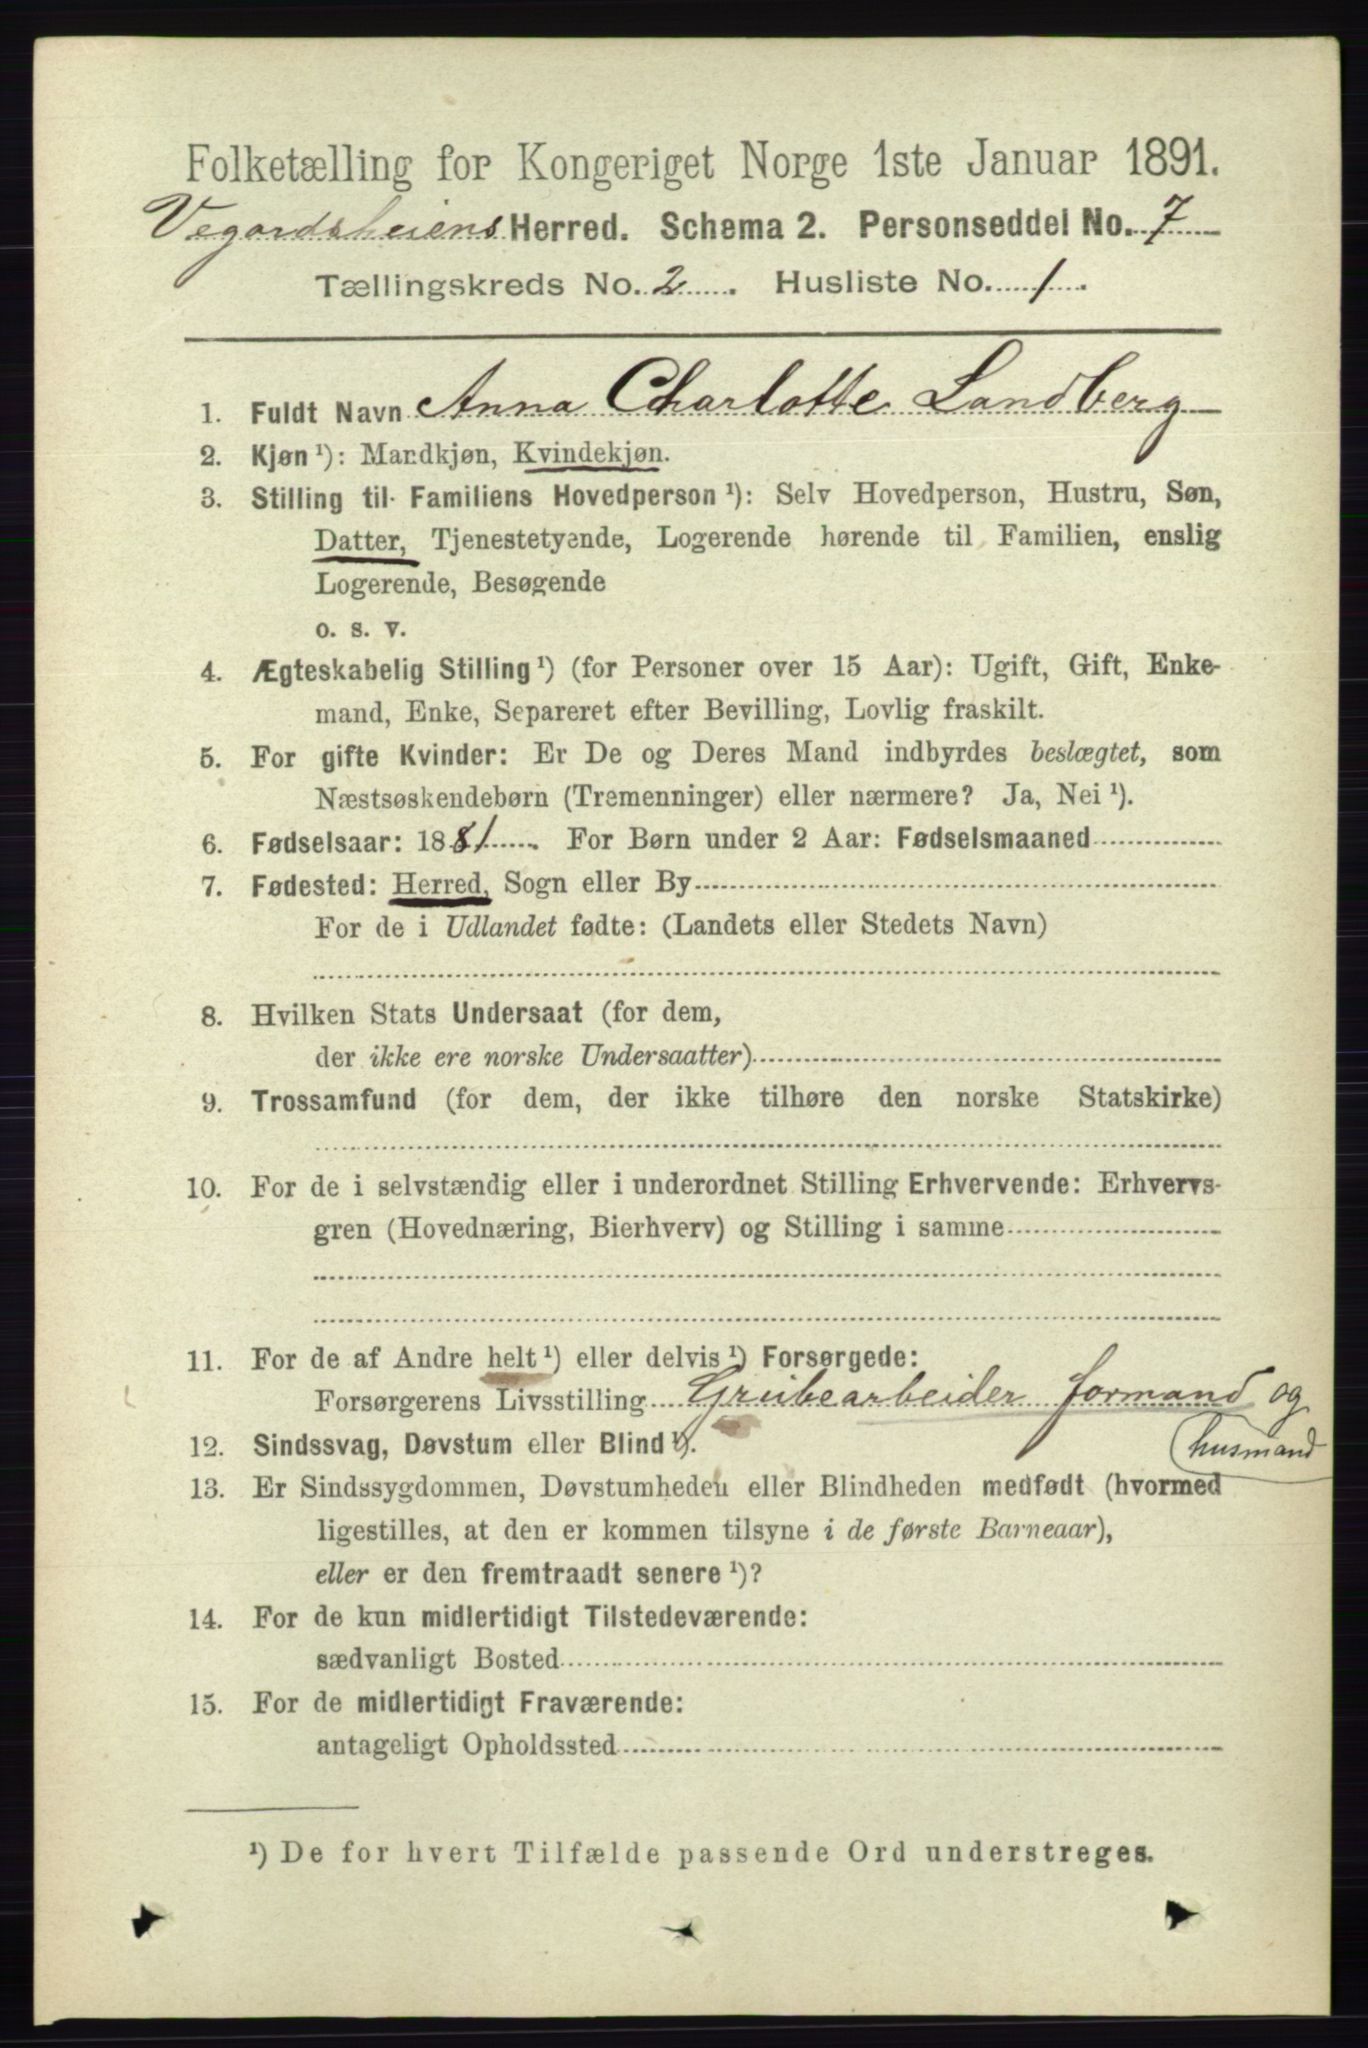 Folketælling for Kongeriget Norge 1ste Januar 1891.
Vegardsheiens Herred. Schema 2. Personseddel No. 7
Tællingskreds No. 2. Husliste No. 1.
1. Fuldt Navn Anna Charlotte Landberg
2. Kjøn ¹): Mandkjøn, Kvindekjøn.
3. Stilling til Familiens Hovedperson ¹): Selv Hovedperson, Hustru, Søn,
Datter, Tjenestetyende, Logerende hørende til Familien, enslig
Logerende, Besøgende
o. s. v.
4. Ægteskabelig Stilling ¹) (for Personer over 15 Aar): Ugift, Gift, Enke-
mand, Enke, Separeret efter Bevilling, Lovlig fraskilt.
5. For gifte Kvinder: Er De og Deres Mand indbyrdes beslægtet, som
Næstsøskendebørn (Tremenninger) eller nærmere? Ja, Nei ¹).
6. Fødselsaar: 1881. For Børn under 2 Aar: Fødselsmaaned
7. Fødested: Herred, Sogn eller By
For de i Udlandet fødte: (Landets eller Stedets Navn)
8. Hvilken Stats Undersaat (for dem,
der ikke ere norske Undersaatter)
9. Trossamfund (for dem, der ikke tilhøre den norske Statskirke)
10. For de i selvstændig eller i underordnet Stilling Erhvervende: Erhvervs-
gren (Hovednæring, Bierhverv) og Stilling i samme
11. For de af Andre helt ¹) eller delvis ¹) Forsørgede:
Forsørgerens Livsstilling Grubearbeider formand og
husmand
12. Sindssvag, Døvstum eller Blind ¹).
13. Er Sindssygdommen, Døvstumheden eller Blindheden medfødt (hvormed
ligestilles, at den er kommen tilsyne i de første Barneaar),
eller er den fremtraadt senere ¹)?
14. For de kun midlertidigt Tilstedeværende:
sædvanligt Bosted
15. For de midlertidigt Fraværende:
antageligt Opholdssted
¹) De for hvert Tilfælde passende Ord understreges.